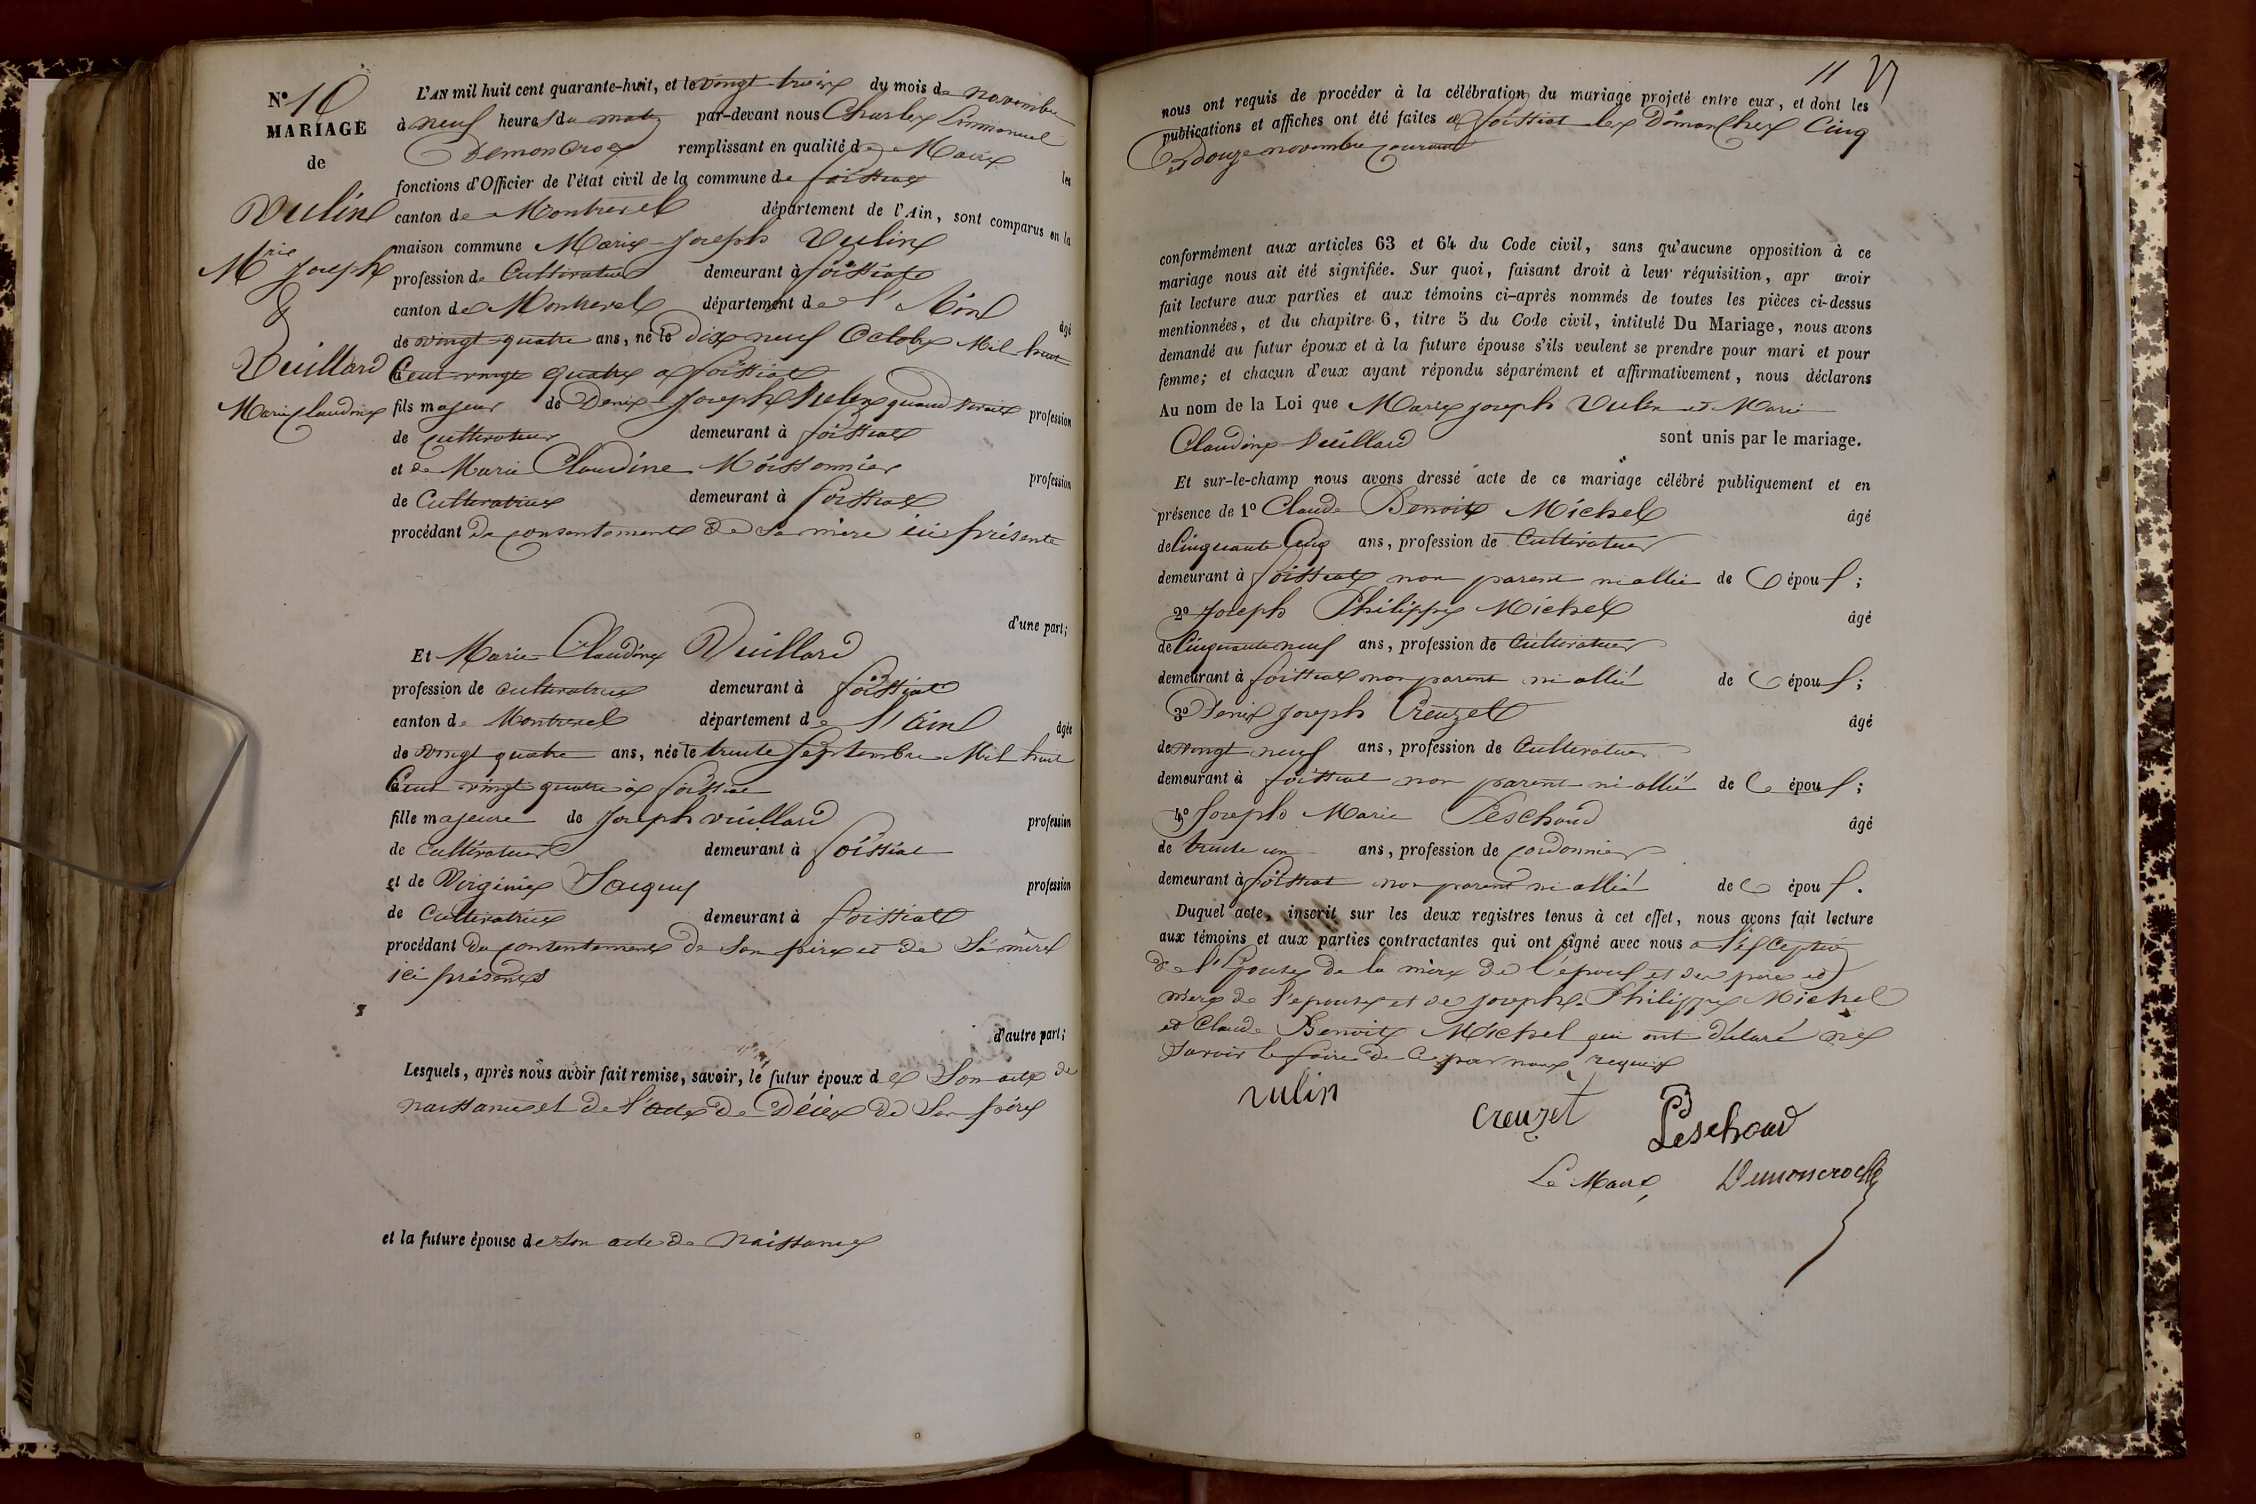 N° 10
MARIAGE
de
Vulin
Mrie Joseph
&
Vuillard
Marie Claudine
L'AN mil huit cent quarante-huit, et le vingt trois du mois de novembre
à neuf heures du matin par-devant nous Charles Emmanuel
Demoncroux remplissant en qualité de Maire les
fonctions d'Officier de l'état civil de la commune de foissiat
canton de Montrevel département de l'Ain, sont comparus en la
maison commune Marie Joseph Vulin
profession de Cultivateur demeurant à foissiat
canton de Montrevel département de l'Ain âgé
de vingt quatre ans, né le dix neuf Octobre Mil huit
Cent vingt quatre a foissiat
fils majeur de Denis Joseph Vulin quand vivait profession
de cultivateur demeurant à foissiat
et de Marie Claudine Moissonnier profession
de Cultivatrice demeurant à foissiat
procédant du consentement de sa mère ici présente
d'une part;
Et Marie Claudine Vuillard
profession de cultivatrice demeurant à foissiat
canton de Montrevel département de l'Ain âgée
de vingt quatre ans, née le trente Septembre Mil huit
Cent vingt quatre à foissiat
fille majeure de Joseph vuillard profession
de cultivateur demeurant à foissiat
et de Virginie profession
de Cultivatrice demeurant à foissiat
procédant du consentement de son père et de Sa mère
ici présents
d'autre part;
Lesquels, après nous avoir fait remise, savoir, le futur époux de Son acte de
naissance et de l'acte de Décès de Son père
et la future épouse de son acte de Naissance
11
nous ont requis de procéder à la célébration du mariage projeté entre eux, et dont les
publications et affiches ont été faites a foissiat les Dimanches Cinq
et douze novembre courant
conformément aux articles 63 et 64 du Code civil, sans qu'aucune opposition à ce
mariage nous ait été signifiée. Sur quoi, faisant droit à leur réquisition, apr avoir
fait lecture aux parties et aux témoins ci-après nommés de toutes les pièces ci-dessus
mentionnées, et du chapitre 6, titre 5 du Code civil, intitulé Du Mariage, nous avons
demandé au futur époux et à la future épouse s'ils veulent se prendre pour mari et pour
femme; et chacun d'eux ayant répondu séparément et affirmativement, nous déclarons
Au nom de la Loi que Marie joseph Vulin et Marie
Claudine Vuillard sont unis par le mariage.
Et sur-le-champ nous avons dressé acte de ce mariage célébré publiquement et en
présence de 1° Claude Benoit Michel âgé
de Cinquante Cinq ans, profession de Cultivateur
demeurant à foissiat non parent ni allié de C époux;
2° Joseph Philippe Michel âgé
de Cinquante neuf ans, profession de Cultivateur
demeurant à foissiat non parent ni allié de C époux;
3° Denis Joseph Creuzet âgé
de vingt neuf ans, profession de Cultivateur
demeurant à foissiat non parent ni allié de C époux;
4° Joseph Marie Peschoud âgé
de trente un ans, profession de cordonnier
demeurant à foissiat non parent ni allié de C époux.
Duquel acte, inscrit sur les deux registres tenus à cet effet, nous avons fait lecture
aux témoins et aux parties contractantes qui ont signé avec nous a l'exception
de l'Epouse de la mère de l'époux et des père et
mère de l'epouse et de joseph Philippe Michel
et Claude Benoit Michel qui ont déclaré ne
savoir le faire de ce par nous requis
vulin
creuzet
Peschoud
Le Maire